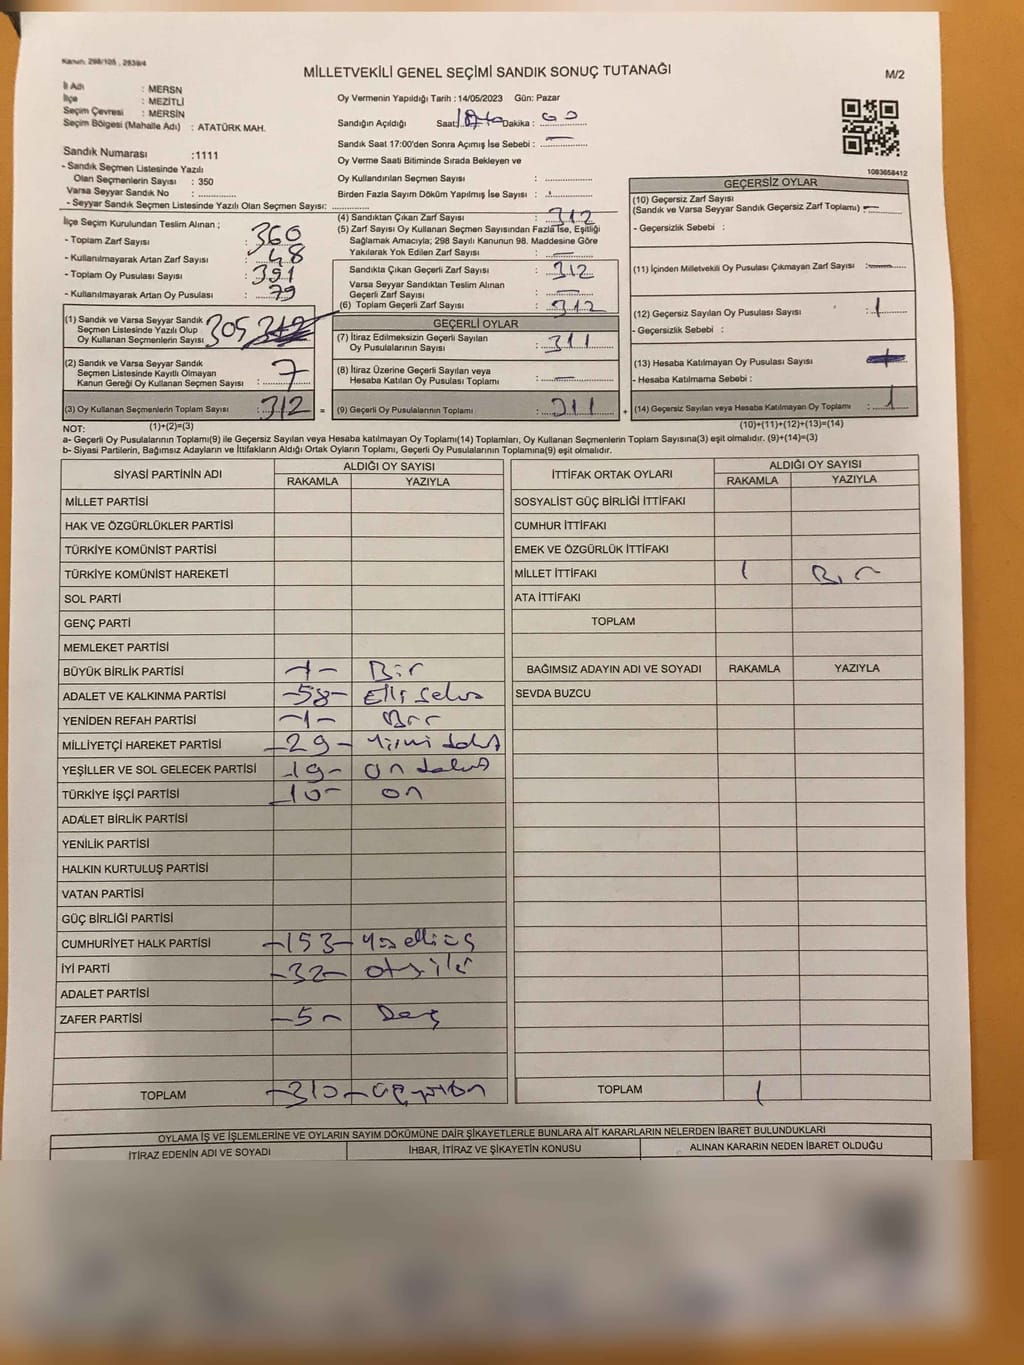 Kanun: 298/105 , 2839/4
MİLLETVEKİLİ GENEL SEÇİMİ SANDIK SONUÇ TUTANAĞI
M/2
İl Adı : MERSN
İlçe : MEZİTLİ
Seçim Çevresi : MERSİN
Seçim Bölgesi (Mahalle Adı) : ATATÜRK MAH.
Sandık Numarası :1111
- Sandık Seçmen Listesinde Yazılı
Olan Seçmenlerin Sayısı : 350
Varsa Seyyar Sandık No : ..................
- Seyyar Sandık Seçmen Listesinde Yazılı Olan Seçmen Sayısı: ..................
Oy Vermenin Yapıldığı Tarih : 14/05/2023 Gün: Pazar
Sandığın Açıldığı Saat: Dakika :
Sandık Saat 17:00'den Sonra Açımış İse Sebebi : —
Oy Verme Saati Bitiminde Sırada Bekleyen ve
Oy Kullandırılan Seçmen Sayısı : ..................
Birden Fazla Sayım Döküm Yapılmış İse Sayısı : ..................
1083658412
İlçe Seçim Kurulundan Teslim Alınan ;
- Toplam Zarf Sayısı : 360
- Kullanılmayarak Artan Zarf Sayısı : 48
- Toplam Oy Pusulası Sayısı : 391
- Kullanılmayarak Artan Oy Pusulası : 79
(1) Sandık ve Varsa Seyyar Sandık
Seçmen Listesinde Yazılı Olup
Oy Kullanan Seçmenlerin Sayısı 305 312
(2) Sandık ve Varsa Seyyar Sandık
Seçmen Listesinde Kayıtlı Olmayan
Kanun Gereği Oy Kullanan Seçmen Sayısı : 7
(3) Oy Kullanan Seçmenlerin Toplam Sayısı : 312 =
(1)+(2)=(3)
(4) Sandıktan Çıkan Zarf Sayısı : 312
(5) Zarf Sayısı Oy Kullanan Seçmen Sayısından Fazla İse, Eşitliği
Sağlamak Amacıyla; 298 Sayılı Kanunun 98. Maddesine Göre
Yakılarak Yok Edilen Zarf Sayısı : —
Sandıkta Çıkan Geçerli Zarf Sayısı : 312
Varsa Seyyar Sandıktan Teslim Alınan
Geçerli Zarf Sayısı : —
(6) Toplam Geçerli Zarf Sayısı : 312
GEÇERLİ OYLAR
(7) İtiraz Edilmeksizin Geçerli Sayılan
Oy Pusulalarının Sayısı : 311
(8) İtiraz Üzerine Geçerli Sayılan veya
Hesaba Katılan Oy Pusulası Toplamı : —
(9) Geçerli Oy Pusulalarının Toplamı : 311 +
GEÇERSİZ OYLAR
(10) Geçersiz Zarf Sayısı
(Sandık ve Varsa Seyyar Sandık Geçersiz Zarf Toplamı) : —
- Geçersizlik Sebebi :
(11) İçinden Milletvekili Oy Pusulası Çıkmayan Zarf Sayısı : —
(12) Geçersiz Sayılan Oy Pusulası Sayısı : 1
- Geçersizlik Sebebi :
(13) Hesaba Katılmayan Oy Pusulası Sayısı
- Hesaba Katılmama Sebebi :
(14) Geçersiz Sayılan veya Hesaba Katılmayan Oy Toplamı : 1
(10)+(11)+(12)+(13)=(14)
NOT:
a- Geçerli Oy Pusulalarının Toplamı(9) ile Geçersiz Sayılan veya Hesaba katılmayan Oy Toplamı(14) Toplamları, Oy Kullanan Seçmenlerin Toplam Sayısına(3) eşit olmalıdır. (9)+(14)=(3)
b- Siyasi Partilerin, Bağımsız Adayların ve İttifakların Aldığı Ortak Oyların Toplamı, Geçerli Oy Pusulalarının Toplamına(9) eşit olmalıdır.
SİYASİ PARTİNİN ADI ALDIĞI OY SAYISI
RAKAMLA YAZIYLA
MİLLET PARTİSİ
HAK VE ÖZGÜRLÜKLER PARTİSİ
TÜRKİYE KOMÜNİST PARTİSİ
TÜRKİYE KOMÜNİST HAREKETİ
SOL PARTİ
GENÇ PARTİ
MEMLEKET PARTİSİ
BÜYÜK BİRLİK PARTİSİ -1- Bir
ADALET VE KALKINMA PARTİSİ -58- Elli sekiz
YENİDEN REFAH PARTİSİ -1- Bir
MİLLİYETÇİ HAREKET PARTİSİ -29- Yirmi dokuz
YEŞİLLER VE SOL GELECEK PARTİSİ -19- on dokuz
TÜRKİYE İŞÇİ PARTİSİ -10- on
ADALET BİRLİK PARTİSİ
YENİLİK PARTİSİ
HALKIN KURTULUŞ PARTİSİ
VATAN PARTİSİ
GÜÇ BİRLİĞİ PARTİSİ
CUMHURİYET HALK PARTİSİ -153- Yüzelliüç
İYİ PARTİ -32- otuziki
ADALET PARTİSİ
ZAFER PARTİSİ -5- Beş
TOPLAM -310- üçyüzon
İTTİFAK ORTAK OYLARI ALDIĞI OY SAYISI
RAKAMLA YAZIYLA
SOSYALİST GÜÇ BİRLİĞİ İTTİFAKI
CUMHUR İTTİFAKI
EMEK VE ÖZGÜRLÜK İTTİFAKI
MİLLET İTTİFAKI 1 Bir
ATA İTTİFAKI
TOPLAM
BAĞIMSIZ ADAYIN ADI VE SOYADI RAKAMLA YAZIYLA
SEVDA BUZCU
TOPLAM 1
OYLAMA İŞ VE İŞLEMLERİNE VE OYLARIN SAYIM DÖKÜMÜNE DAİR ŞİKAYETLERLE BUNLARA AİT KARARLARIN NELERDEN İBARET BULUNDUKLARI
İTİRAZ EDENİN ADI VE SOYADI İHBAR, İTİRAZ VE ŞİKAYETİN KONUSU ALINAN KARARIN NEDEN İBARET OLDUĞU